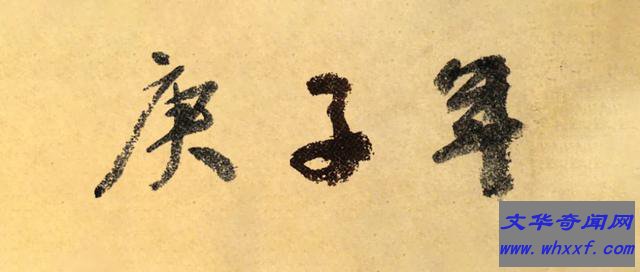 庚子年
文华奇闻网
www.whxxf.com